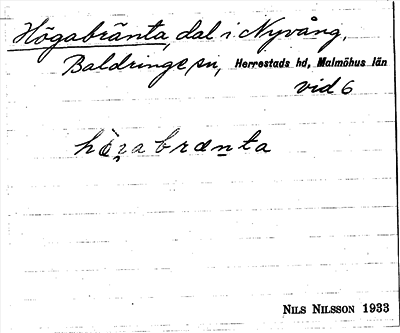 Högabränta, dal i Nyvång,
Baldringe sn, Herrestads hd, Malmöhus län
vid 6
Nils Nilsson 1933